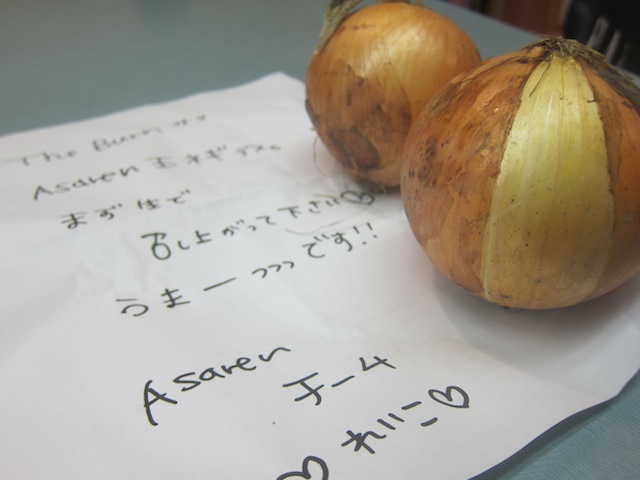 The Buzz サマ
Asaren 玉ネギデス。
まず生で
召し上がって下さい♡
うまーっっっです!!
Asaren
チーム
♡れいこ♡